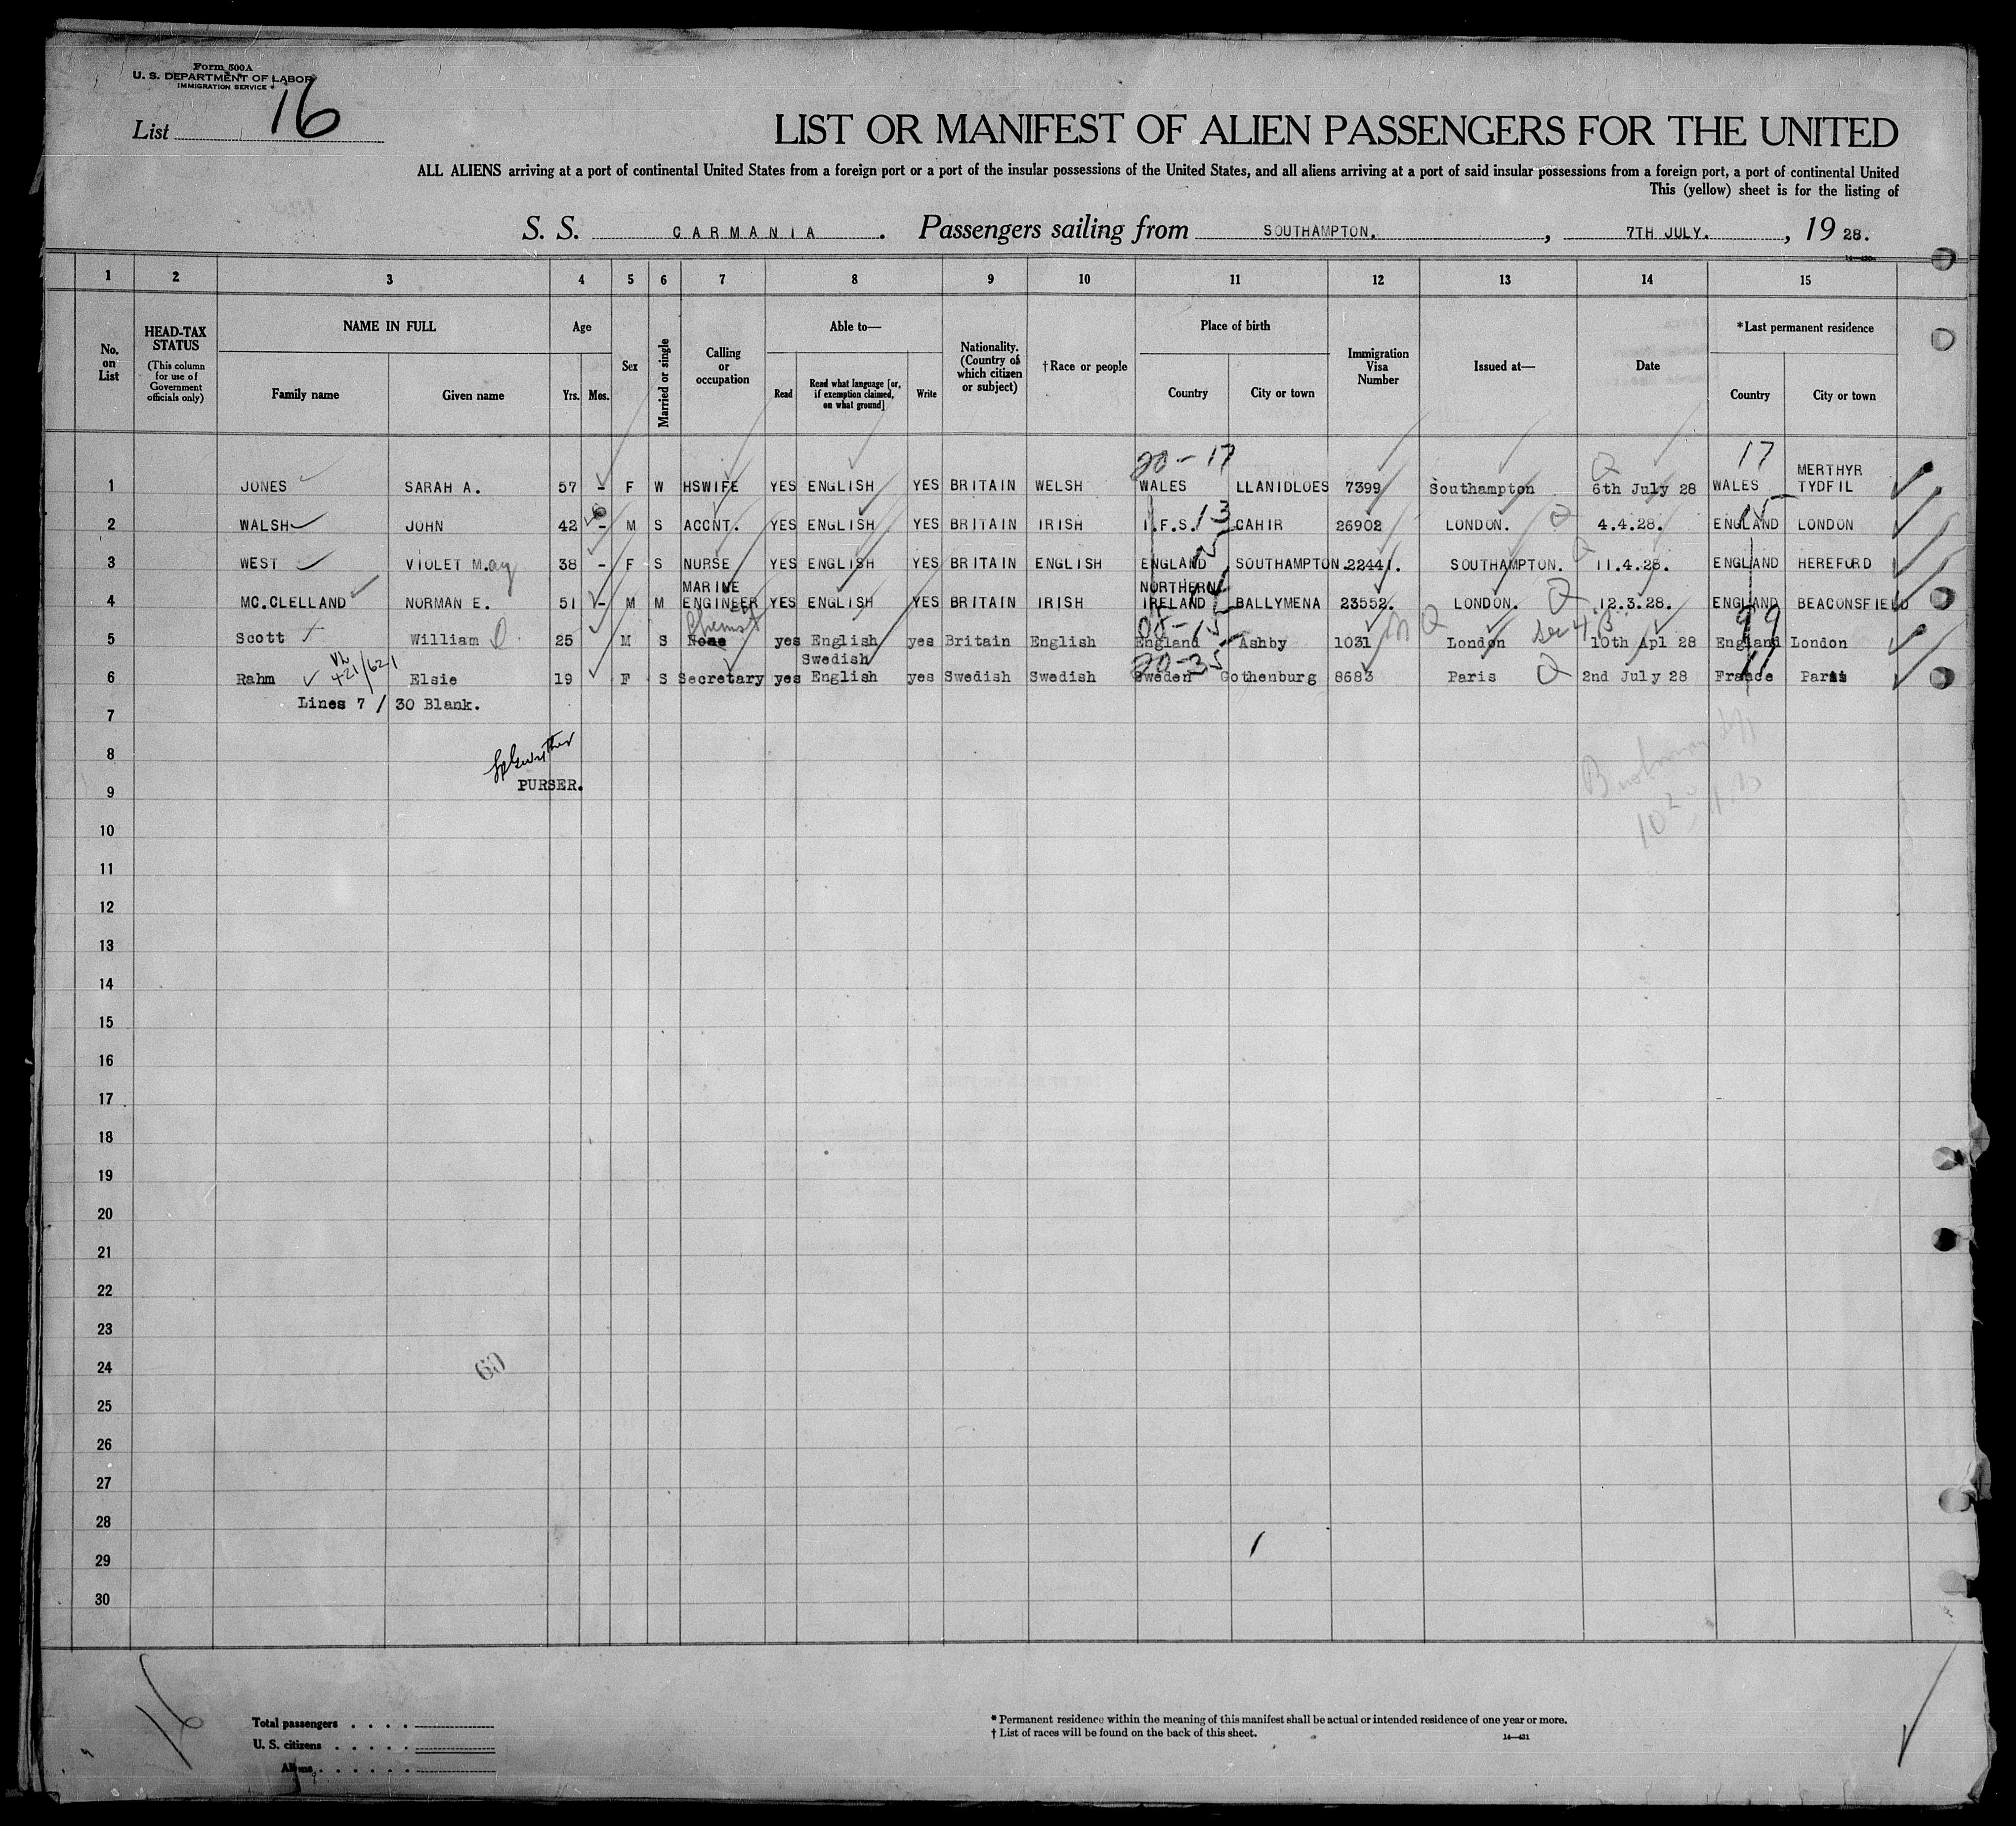 Form 500A
U. S. DEPARTMENT OF LABOR
IMMIGRATION SERVICE
List 16
LIST OR MANIFEST OF ALIEN PASSENGERS FOR THE UNITED
ALL ALIENS arriving at a port of continental United States from a foreign port or a port of the insular possessions of the United States, and all aliens arriving at a port of said insular possessions from a foreign port, a port of continental United
This (yellow) sheet is for the listing of
S. S. CARMANIA. Passengers sailing from SOUTHAMPTON., 7TH JULY., 19 28.
1 2 3 4 5 6 7 8 9 10 11 12 13 14 15
No. on List
HEAD-TAX STATUS
(This column for use of Government officials only)
NAME IN FULL
Family name Given name
Age
Yrs. Mos.
Sex
Married or single
Calling or occupation
Able to—
Read
Read what language [or, if exemption claimed, on what ground]
Write
Nationality. (Country of which citizen or subject)
†Race or people
Place of birth
Country City or town
Immigration Visa Number
Issued at—
Date
*Last permanent residence
Country City or town
20-17 17
1 JONES SARAH A. 57 - F W HSWIFE YES ENGLISH YES BRITAIN WELSH WALES LLANIDLOES 7399 Southampton 6th July 28 WALES MERTHYR TYDFIL
2 WALSH JOHN 42 - M S ACCNT. YES ENGLISH YES BRITAIN IRISH I.F.S. 13 CAHIR 26902 LONDON. 4.4.28. ENGLAND 15 LONDON
3 WEST VIOLET M.ay 38 - F S NURSE YES ENGLISH YES BRITAIN ENGLISH ENGLAND 15 SOUTHAMPTON. 22441. SOUTHAMPTON. 11.4.28. ENGLAND HEREFORD
4 MC.CLELLAND NORMAN E. 51 - M M MARINE ENGINEER YES ENGLISH YES BRITAIN IRISH NORTHERN IRELAND 14 BALLYMENA 23552. LONDON. 12.3.28. ENGLAND BEACONSFIELD
Chemist 08-15 sec 4 B 99
5 Scott William D. 25 M S None yes English yes Britain English England Ashby 1031 London 10th Apl 28 England London
421/621 20-35 11
6 Rahm Elsie 19 F S Secretary yes Swedish English yes Swedish Swedish Sweden Gothenburg 8683 Paris 2nd July 28 France Paris
Lines 7 / 30 Blank.
7
8
PURSER.
9
10
11
12
13
14
15
16
17
18
19
20
21
22
23
24
60
25
26
27
28
29
30
16
Total passengers
U. S. citizens
Aliens
* Permanent residence within the meaning of this manifest shall be actual or intended residence of one year or more.
† List of races will be found on the back of this sheet.
14—431